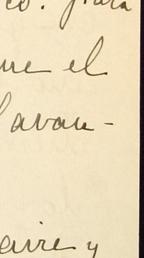 co. para
que el
lavan-
aire y